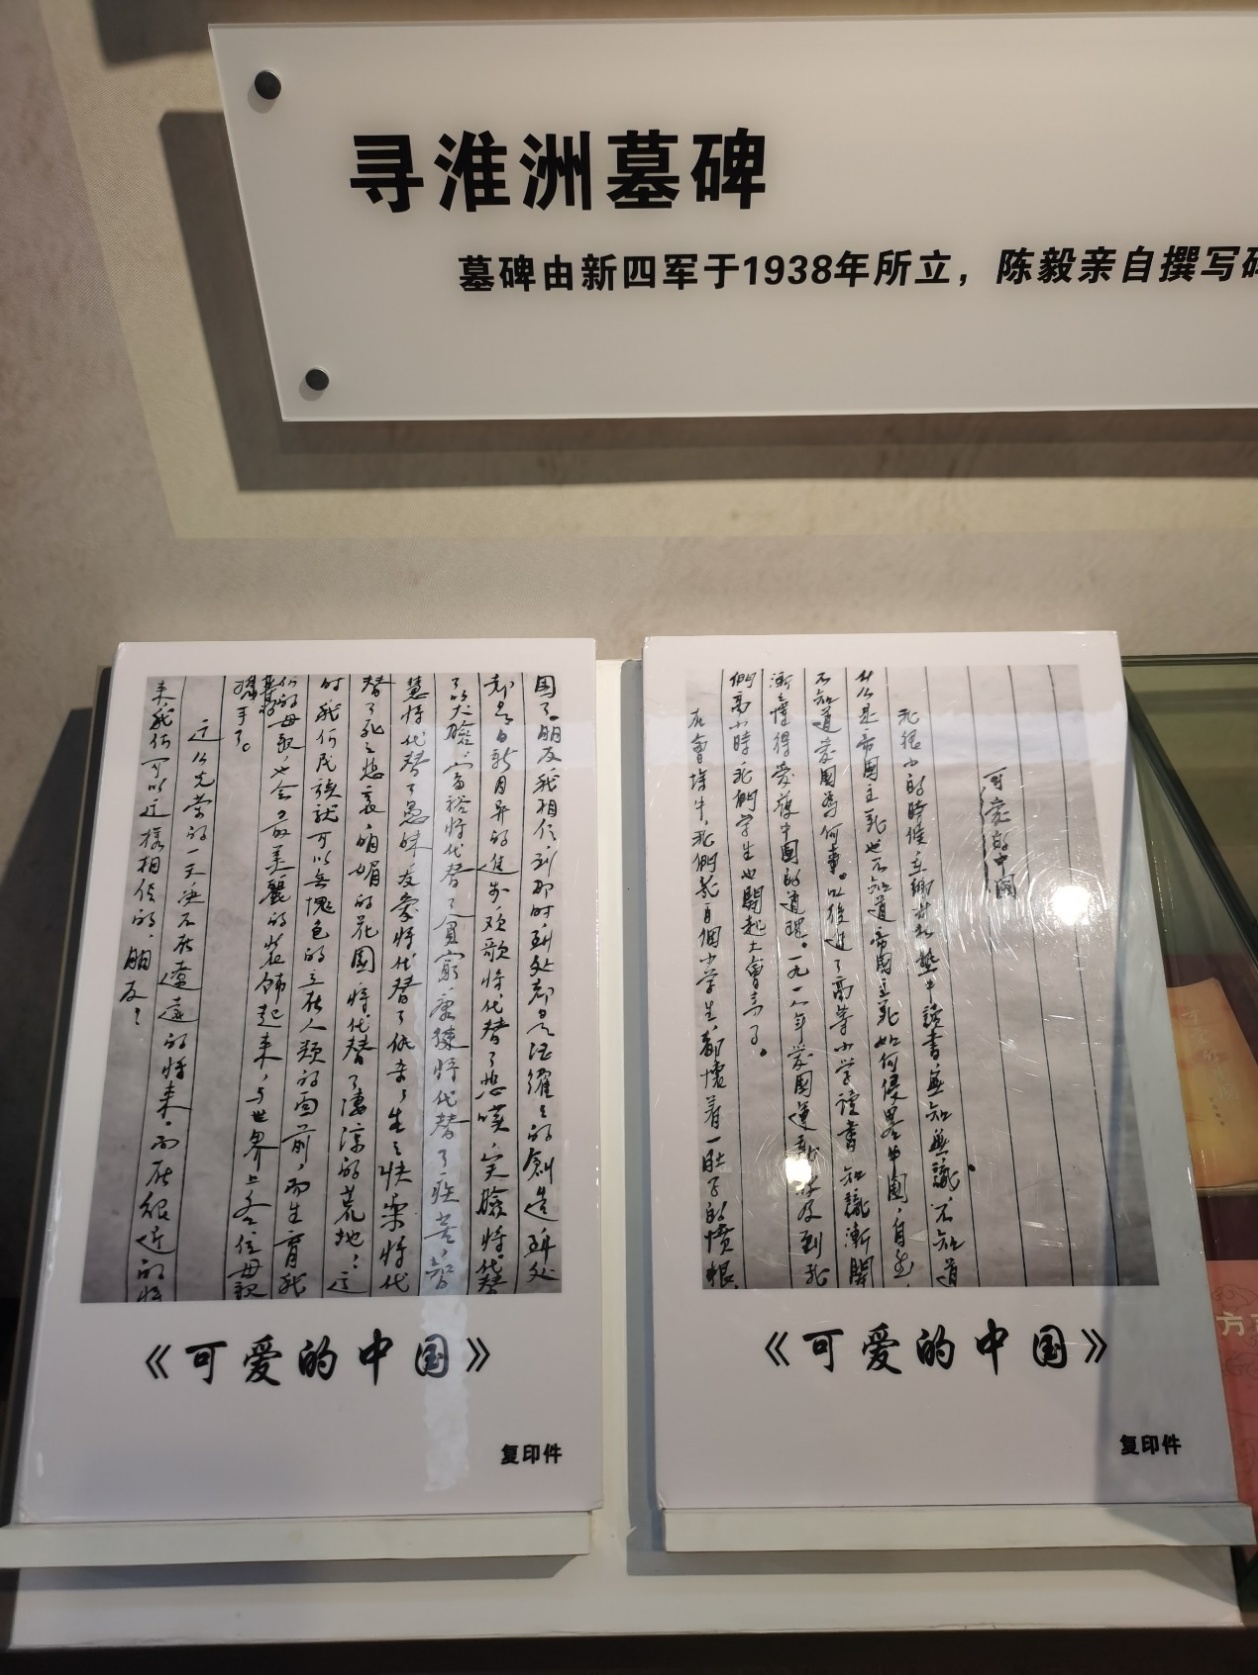 寻淮洲墓碑
墓碑由新四军于1938年所立，陈毅亲自撰写碑
国了。朋友，我相信，到那时，到处都是活躍之的創造，到处
都是日新月异的進步，欢歌将代替了悲嘆，笑臉将代替
了哭臉，富裕将代替了貧窮，康健将代替了疾苦，智
慧将代替了愚昧，友愛将代替了仇杀，生之快樂将代
替了死之悲哀，明媚的花園，将代替了凄凉的荒地！这
时，我们民族就可以無愧色的立在人類的面前，而生育我
们的母親，也会最美麗的装飾起来，与世界上各位母親
携手了。
这么光荣的一天，决不在遼遠的将来，而在很近的将
来，我们可以这樣相信的，朋友！
《可爱的中国》
复印件
可愛的中國
我很小的時候，在鄉村私塾中讀書，無知無識，不知道
什么是帝國主義，也不知道帝國主義如何侵畧中國，自然，
不知道愛國為何事。以後進了高等小学讀書，知識漸開，
漸懂得愛護中國的道理。一九一八年愛國運動波及到我
們高小時，我們学生也開起大會來了。
在會場中，我們幾百個小学生，都懷着一肚子的憤恨，
《可爱的中国》
复印件
方